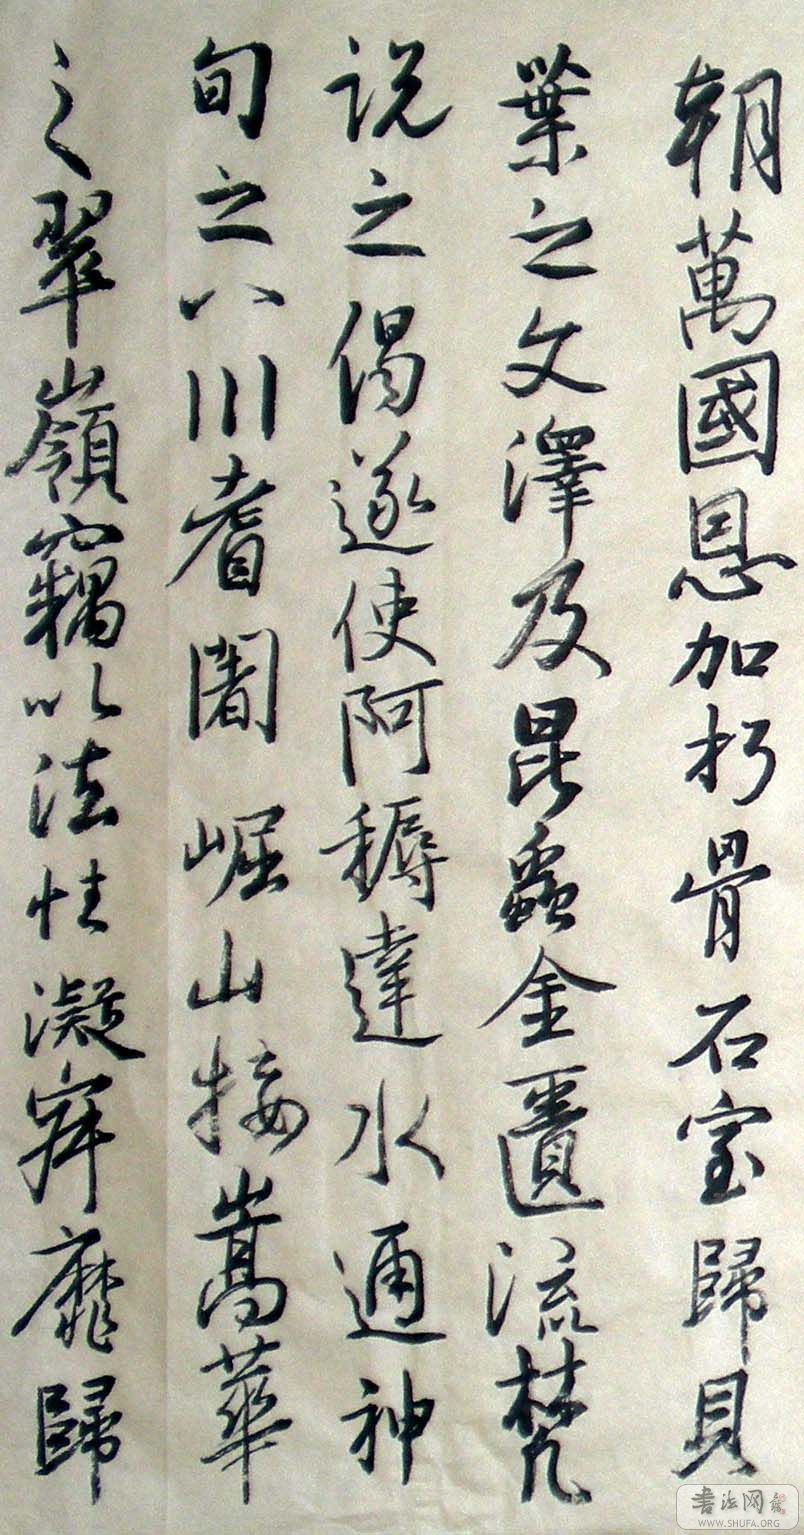 朝萬國恩加朽骨石室歸貝
葉之文澤及昆蟲金匱流梵
説之偈遂使阿耨達水通神
旬之八川耆闍崛山接嵩華
之翠嶺竊以法性凝寂靡歸
书法网
WWW.SHUFA.ORG